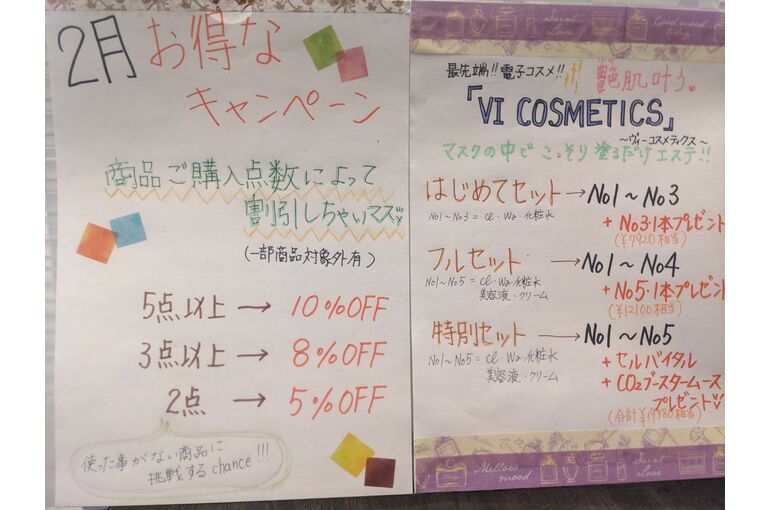 2月 お得な
キャンペーン
商品ご購入点数によって
割引しちゃいマス
(一部商品対象外有)
5点以上 → 10%OFF
3点以上 → 8%OFF
2点 → 5%OFF
使った事がない商品に
挑戦するchance!!!
Saint
Love
Good mood
today
最先端!!電子コスメ!! 艶肌叶う。
「VI COSMETICS」
~ヴィーコスメティクス~
マスクの中でこっそり塗るだけエステ!!
はじめてセット → No1~No3
No1~No3=Cl・Wa・化粧水
+No3・1本プレゼント
(¥7920相当)
フルセット → No1~No4
No1~No5=Cl・Wa・化粧水
美容液・クリーム
+No5・1本プレゼント
(¥12100相当)
特別セット → No1~No5
No1~No5=Cl・Wa・化粧水
美容液・クリーム
+セルバイタル
+CO2ブースタームース
プレゼント
Mellow
mood
Saint
Love